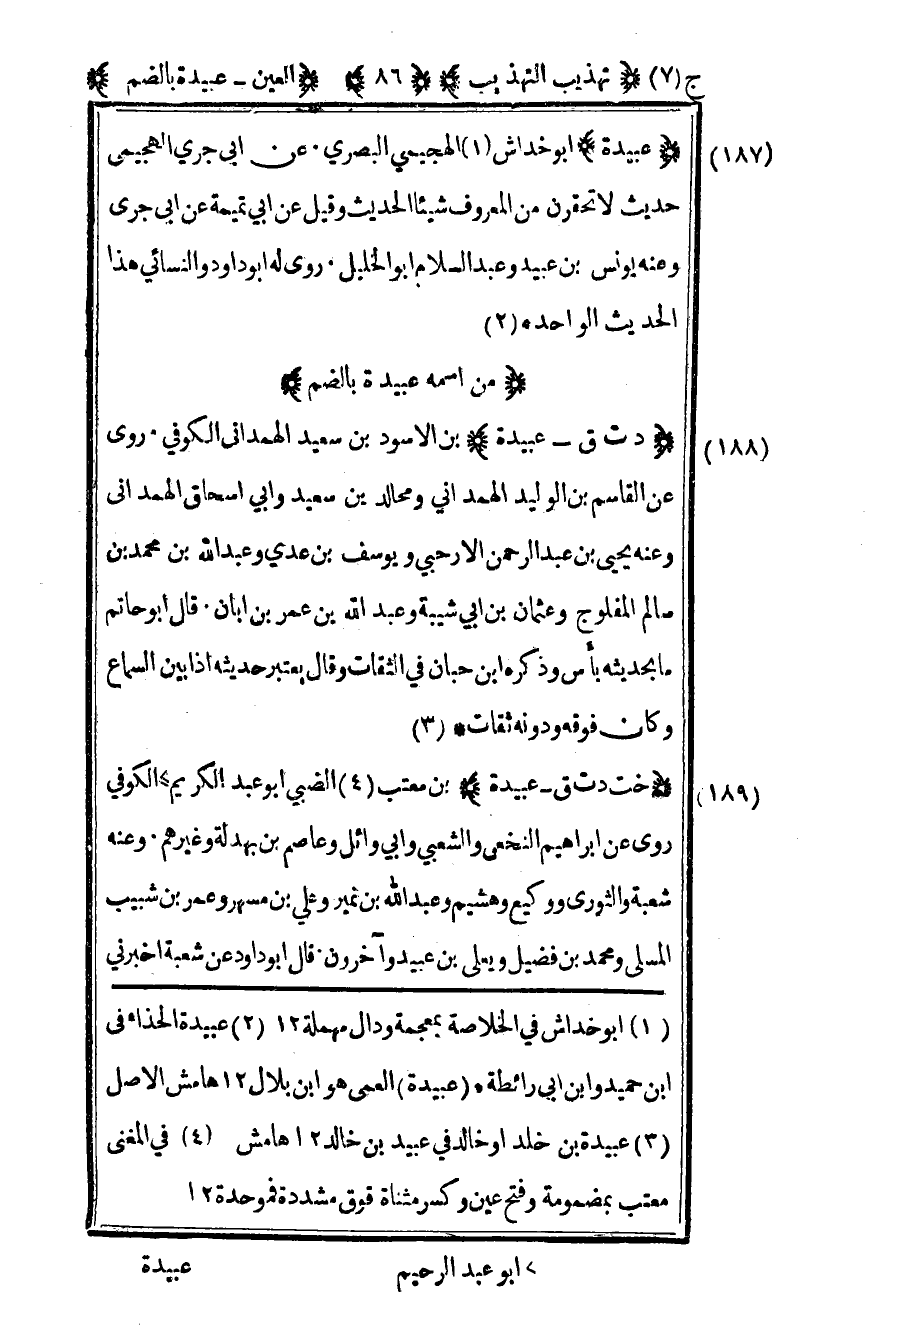 ج (٧) ﴿ تهذيب التهذيب ﴾ ﴿ ٨٦ ﴾ ﴿ العين ـ عبيدة بالضم ﴾
(١٨٧) ﴿ عبيدة ﴾ ابو خداش (١) الهجيمي البصري ٠ عن ابى جري الهجيمى
حديث لا تحقرن من المعروف شيئا الحديث وقيل عن ابي تميمة عن ابى جرى
وعنه يونس بن عبيد وعبد السلام ابو الخليل ٠ روى له ابو داود والنسائي هذا
الحديث الواحد * (٢)
﴿ من اسمه عبيدة بالضم ﴾
(١٨٨) ﴿ د ت ق ـ عبيدة ﴾ بن الاسود بن سعيد الهمدانى الكوفي ٠ روى
عن القاسم بن الوليد الهمداني ومجالد بن سعيد وابي اسحاق الهمدانى
وعنه يحيى بن عبد الرحمن الارحبي ويوسف بن عدي وعبد الله بن محمد بن
سالم المفلوج وعثمان بن ابي شيبة وعبد الله بن عمر بن ابان ٠ قال ابو حاتم
ما بحديثه بأس وذكره ابن حبان في الثقات وقال يعتبر حديثه اذا بين السماع
وكان فوقه ودونه ثقات * (٣)
(١٨٩) ﴿ خت د ت ق ـ عبيدة ﴾ بن معتب (٤) الضبي ابو عبد الكريم > الكوفي
روى عن ابراهيم النخعى والشعبي وابي وائل وعاصم بن بهدلة وغيرهم ٠ وعنه
شعبة والثورى ووكيع وهشيم وعبد الله بن نمير وعلي بن مسهر وعمر بن شبيب
المسلى ومحمد بن فضيل ويعلى بن عبيد وآخرون ٠ قال ابو داود عن شعبة اخبرني
(١) ابو خداش في الخلاصة بمعجمة ودال مهملة ١٢ (٢) عبيدة الحذاء فى
ابن حميد وابن ابي رائطة * (عبيدة) العمى هو ابن بلال ١٢ هامش الاصل
(٣) عبيدة بن خلد او خالد في عبيد بن خالد ١٢ هامش (٤) في المغنى
معتب بمضمومة وفتح عين وكسر مثناة فوق مشددة فموحدة ١٢
> ابو عبد الرحيم عبيدة